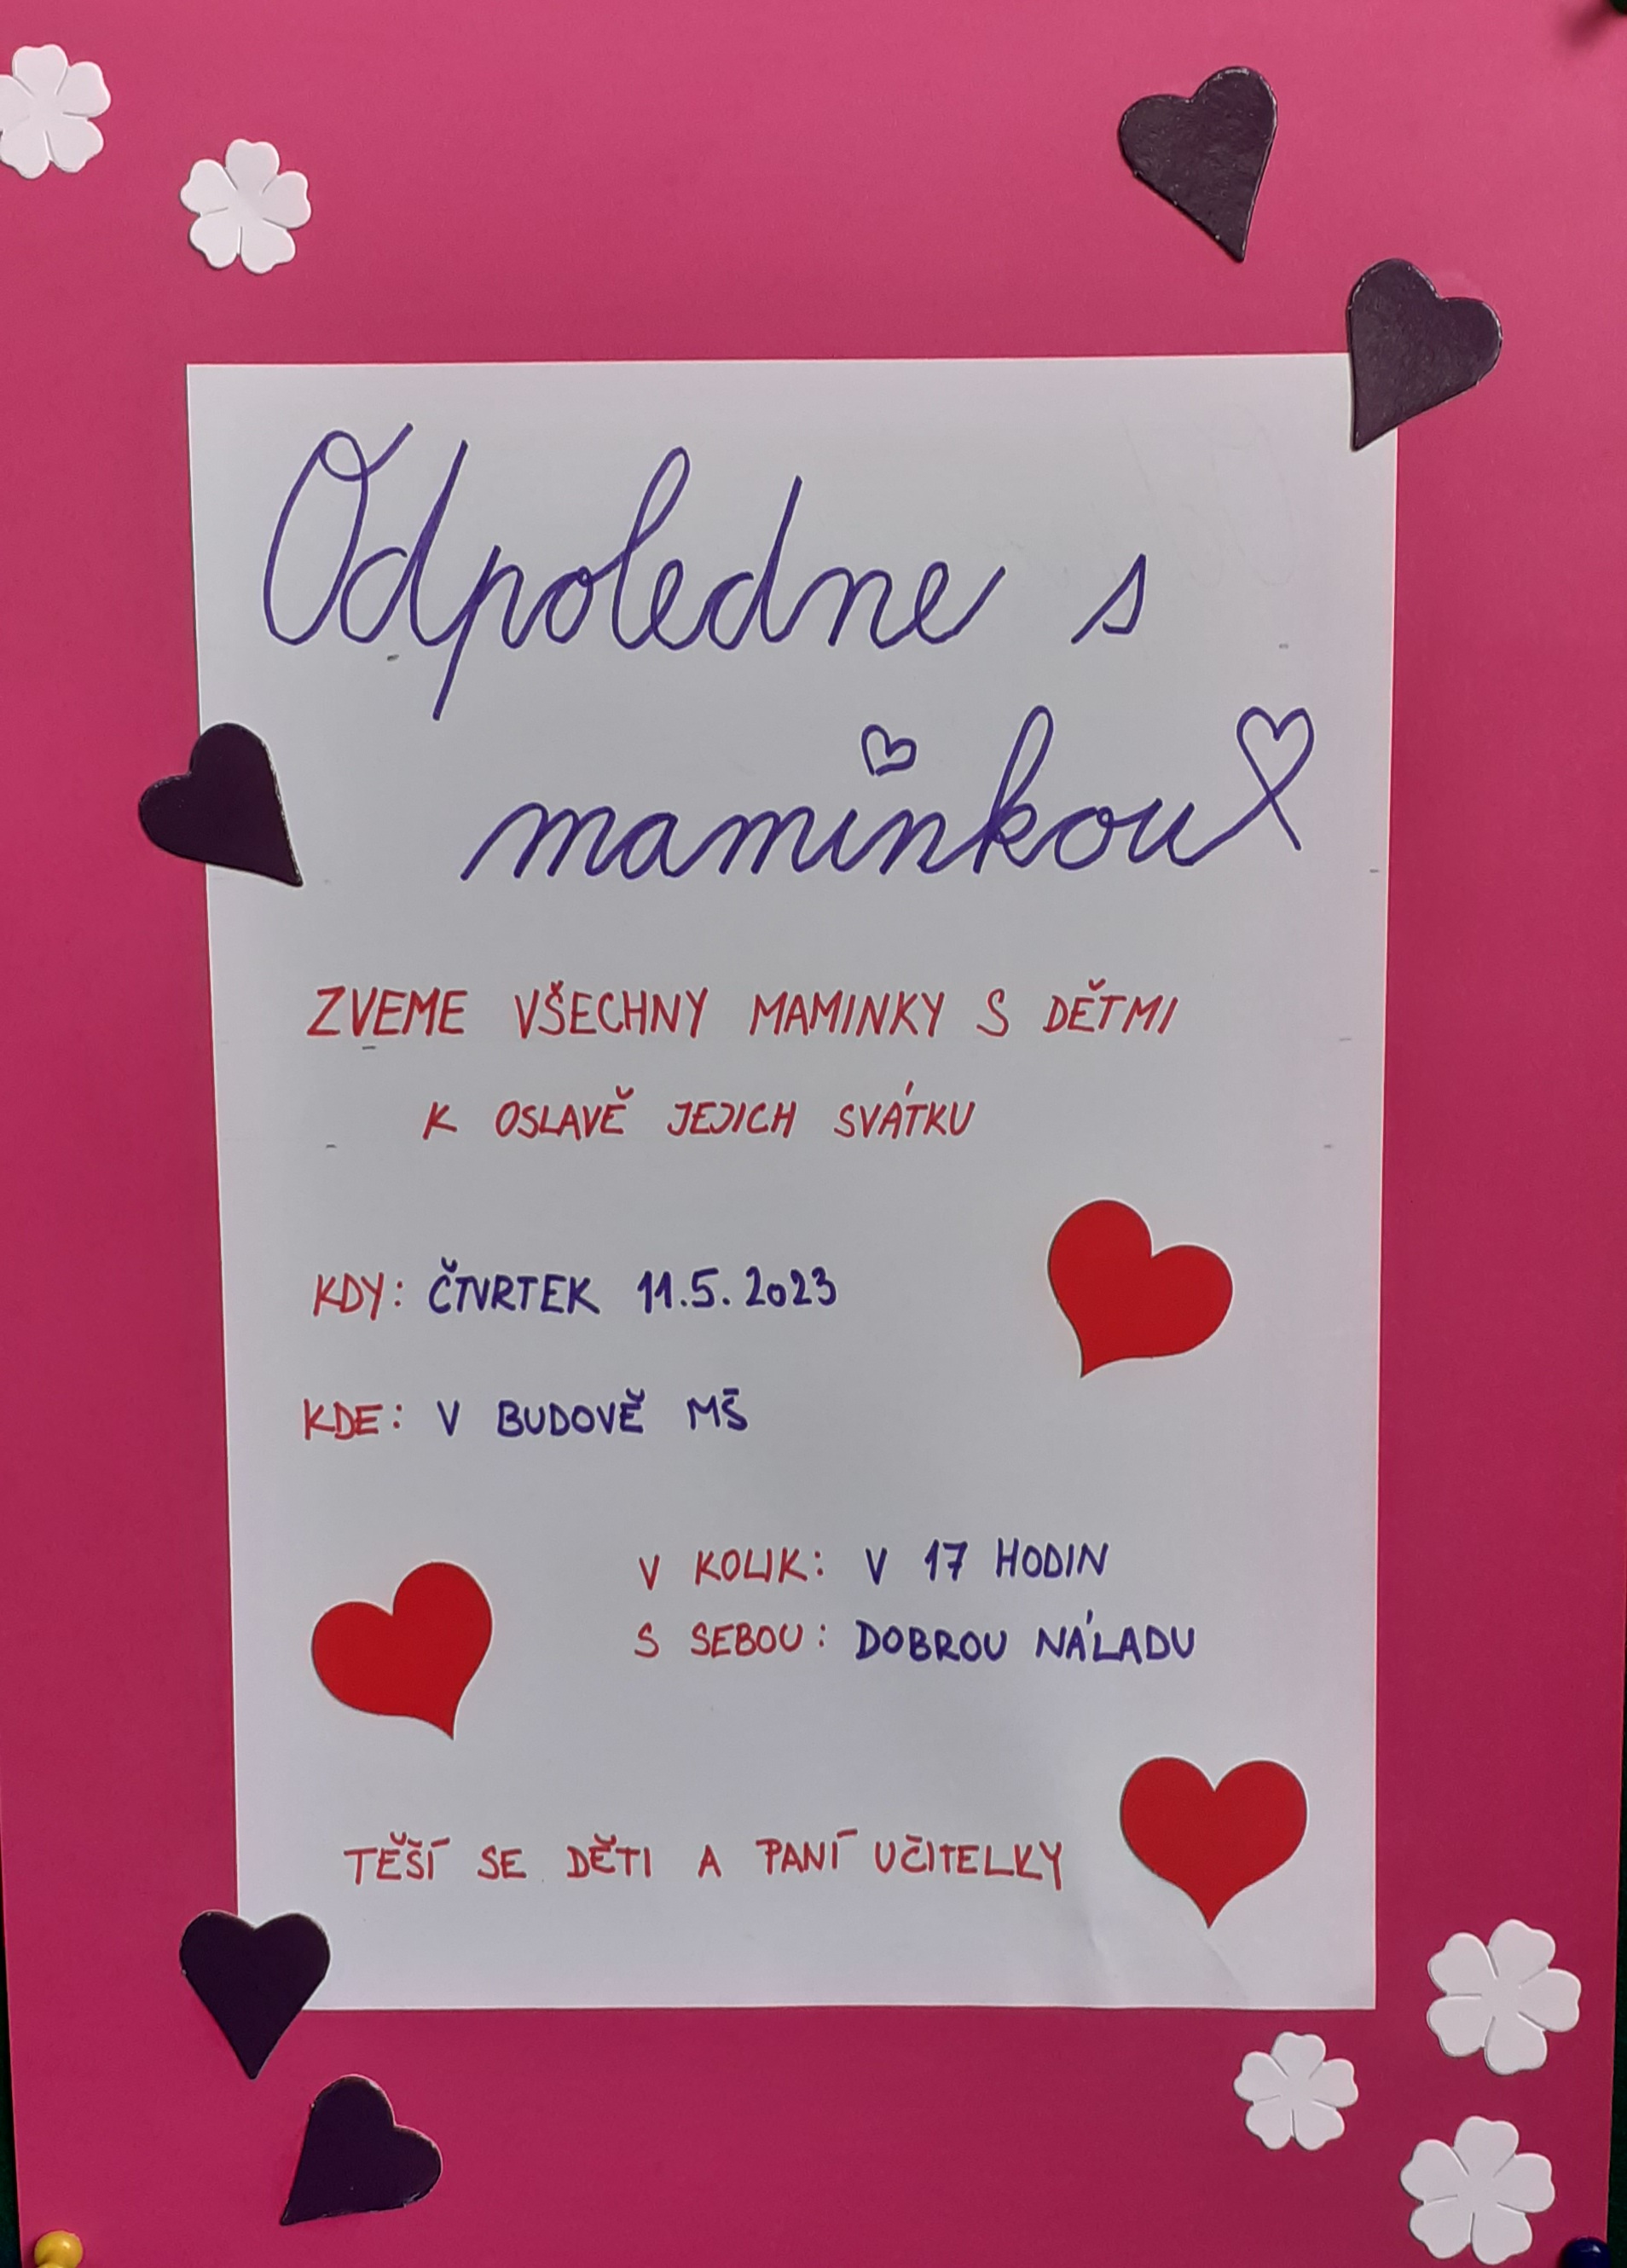 Odpoledne s
maminkou
ZVEME VŠECHNY MAMINKY S DĚTMI
K OSLAVĚ JEJICH SVÁTKU
KDY: ČTVRTEK 11.5.2023
KDE: V BUDOVĚ MŠ
V KOLIK: V 17 HODIN
S SEBOU: DOBROU NÁLADU
TĚŠÍ SE DĚTI A PANÍ UČITELKY